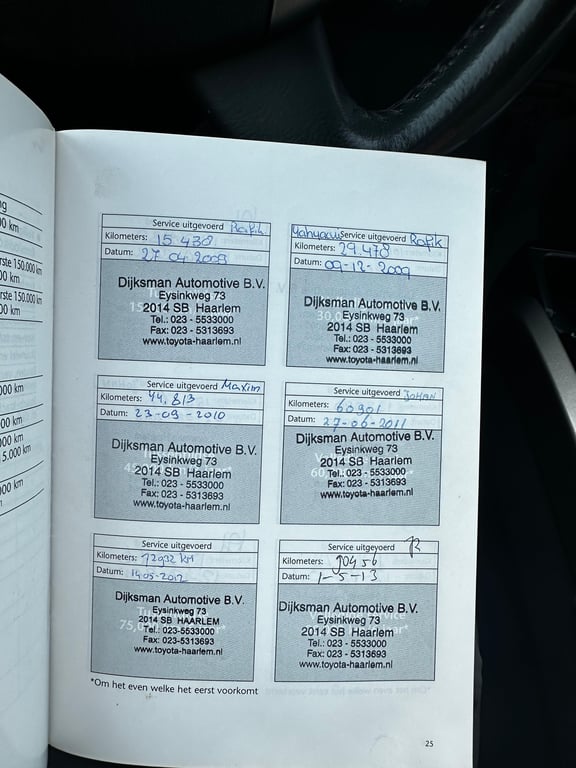 ng
00 km
rste 150.000 km
00 km
rste 150.000 km
00 km
000 km
00 km
000 km
5.000 km
000 km
00 km
Service uitgevoerd Rafik
Kilometers: 15.430
Datum: 27 04 2009
Dijksman Automotive B.V.
Eysinkweg 73
2014 SB Haarlem
Tel.: 023 - 5533000
Fax: 023 - 5313693
www.toyota-haarlem.nl
Service uitgevoerd Rafik
Kilometers: 29.478
Datum: 09-12-2009
Dijksman Automotive B.V.
Eysinkweg 73
2014 SB Haarlem
Tel.: 023 - 5533000
Fax: 023 - 5313693
www.toyota-haarlem.nl
Service uitgevoerd Maxim
Kilometers: 44.813
Datum: 23-09-2010
Dijksman Automotive B.V.
Eysinkweg 73
2014 SB Haarlem
Tel.: 023 - 5533000
Fax: 023 - 5313693
www.toyota-haarlem.nl
Service uitgevoerd JOHAN
Kilometers: 60901
Datum: 27-06-2011
Dijksman Automotive B.V.
Eysinkweg 73
2014 SB Haarlem
Tel.: 023 - 5533000
Fax: 023 - 5313693
www.toyota-haarlem.nl
Service uitgevoerd
Kilometers: 72932 KM
Datum: 14-05-2012
Dijksman Automotive B.V.
Eysinkweg 73
2014 SB HAARLEM
Tel.: 023-5533000
Fax: 023-5313693
www.toyota-haarlem.nl
Service uitgevoerd
Kilometers: 90456
Datum: 1-5-13
Dijksman Automotive B.V.
Eysinkweg 73
2014 SB Haarlem
Tel.: 023 - 5533000
Fax: 023 - 5313693
www.toyota-haarlem.nl
*Om het even welke het eerst voorkomt
25